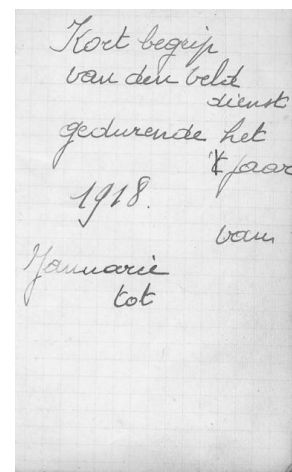 Kort begrip
van den veld
dienst
gedurende het
jaar
1918.
van
Januarie
tot